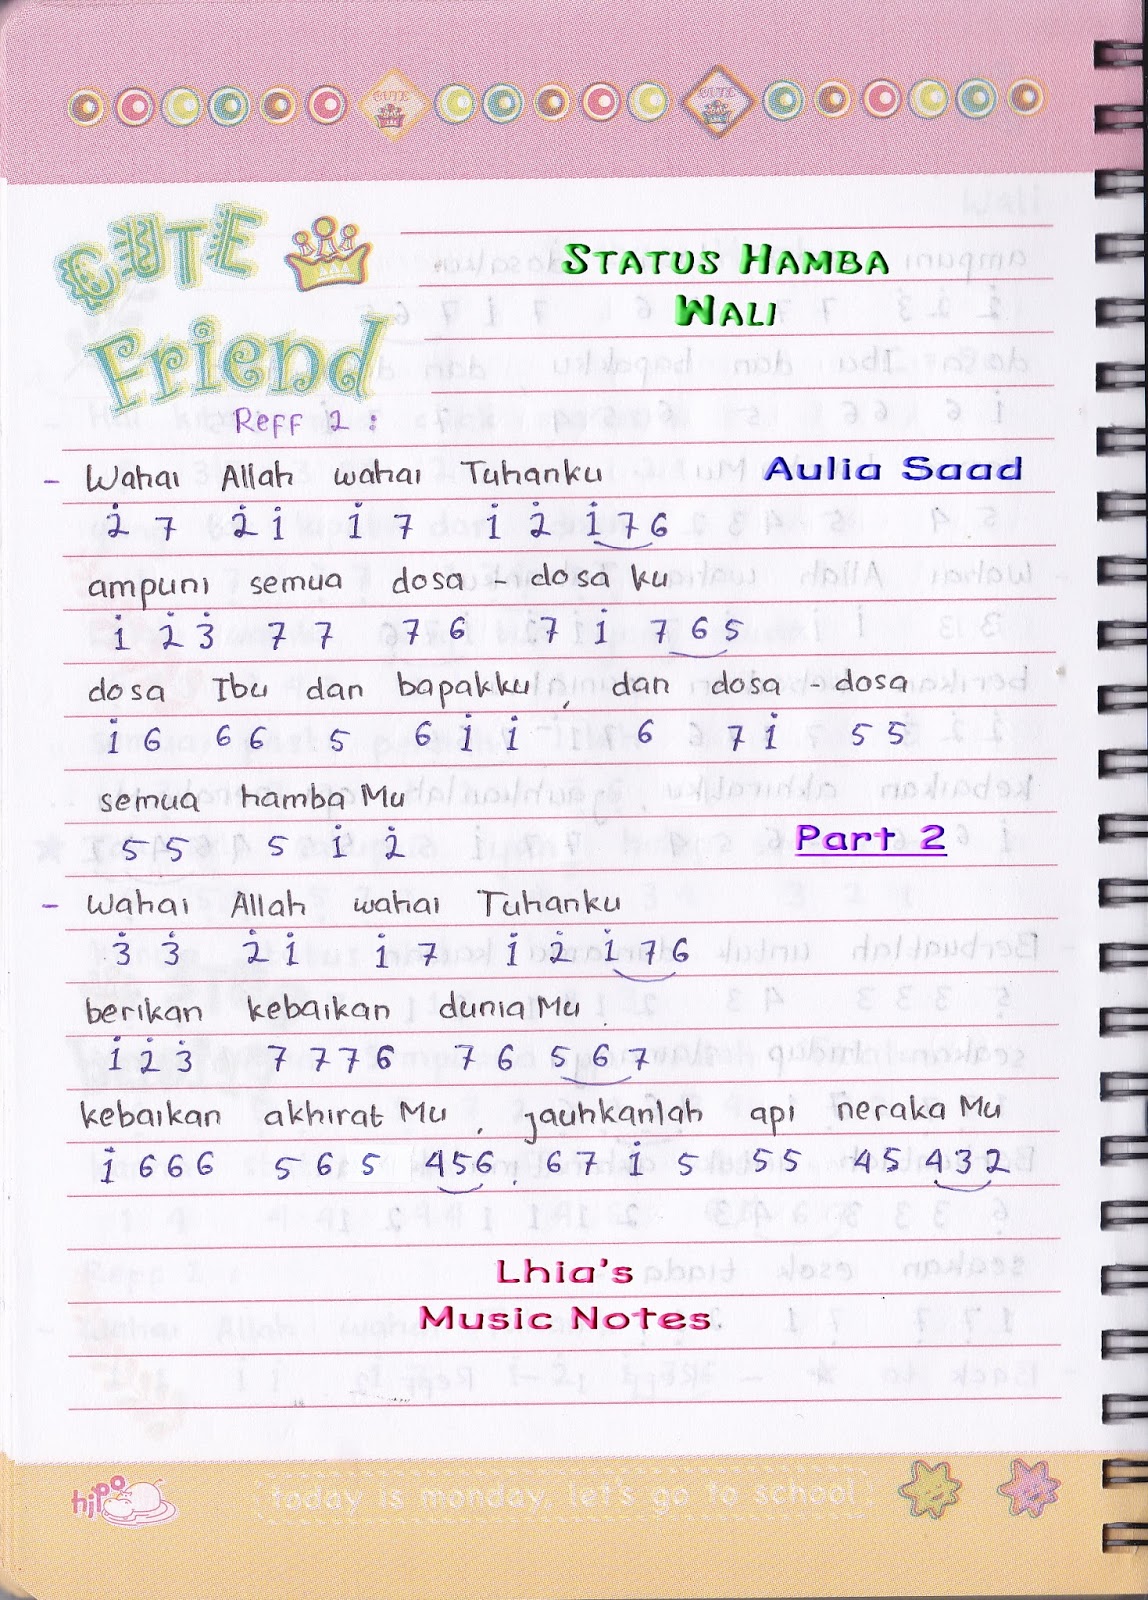 CUTE
CUTE
CUTE
Friend
STATUS HAMBA
WALI
Reff 2 :
- Wahai Allah wahai Tuhanku
Aulia Saad
2̇ 7 2̇ 1̇ 1̇ 7 1̇ 2̇ 1̇ 7 6
ampuni semua dosa - dosa ku
1̇ 2̇ 3̇ 7 7 7 6 7 1̇ 7 6 5
dosa Ibu dan bapakku, dan dosa - dosa
1̇ 6 6 6 5 6 1̇ 1̇ 6 7 1̇ 5 5
semua hamba Mu
5 5 5 1̇ 2̇
Part 2
- Wahai Allah wahai Tuhanku
3̇ 3̇ 2̇ 1̇ 1̇ 7 1̇ 2̇ 1̇ 7 6
berikan kebaikan dunia Mu
1̇ 2̇ 3̇ 7 7 7 6 7 6 5 6 7
kebaikan akhirat Mu, jauhkanlah api neraka Mu
1̇ 6 6 6 5 6 5 4 5 6 . 6 7 1̇ 5 5 5 4 5 4 3 2
Lhia's
Music Notes
hipo
today is monday, let's go to school